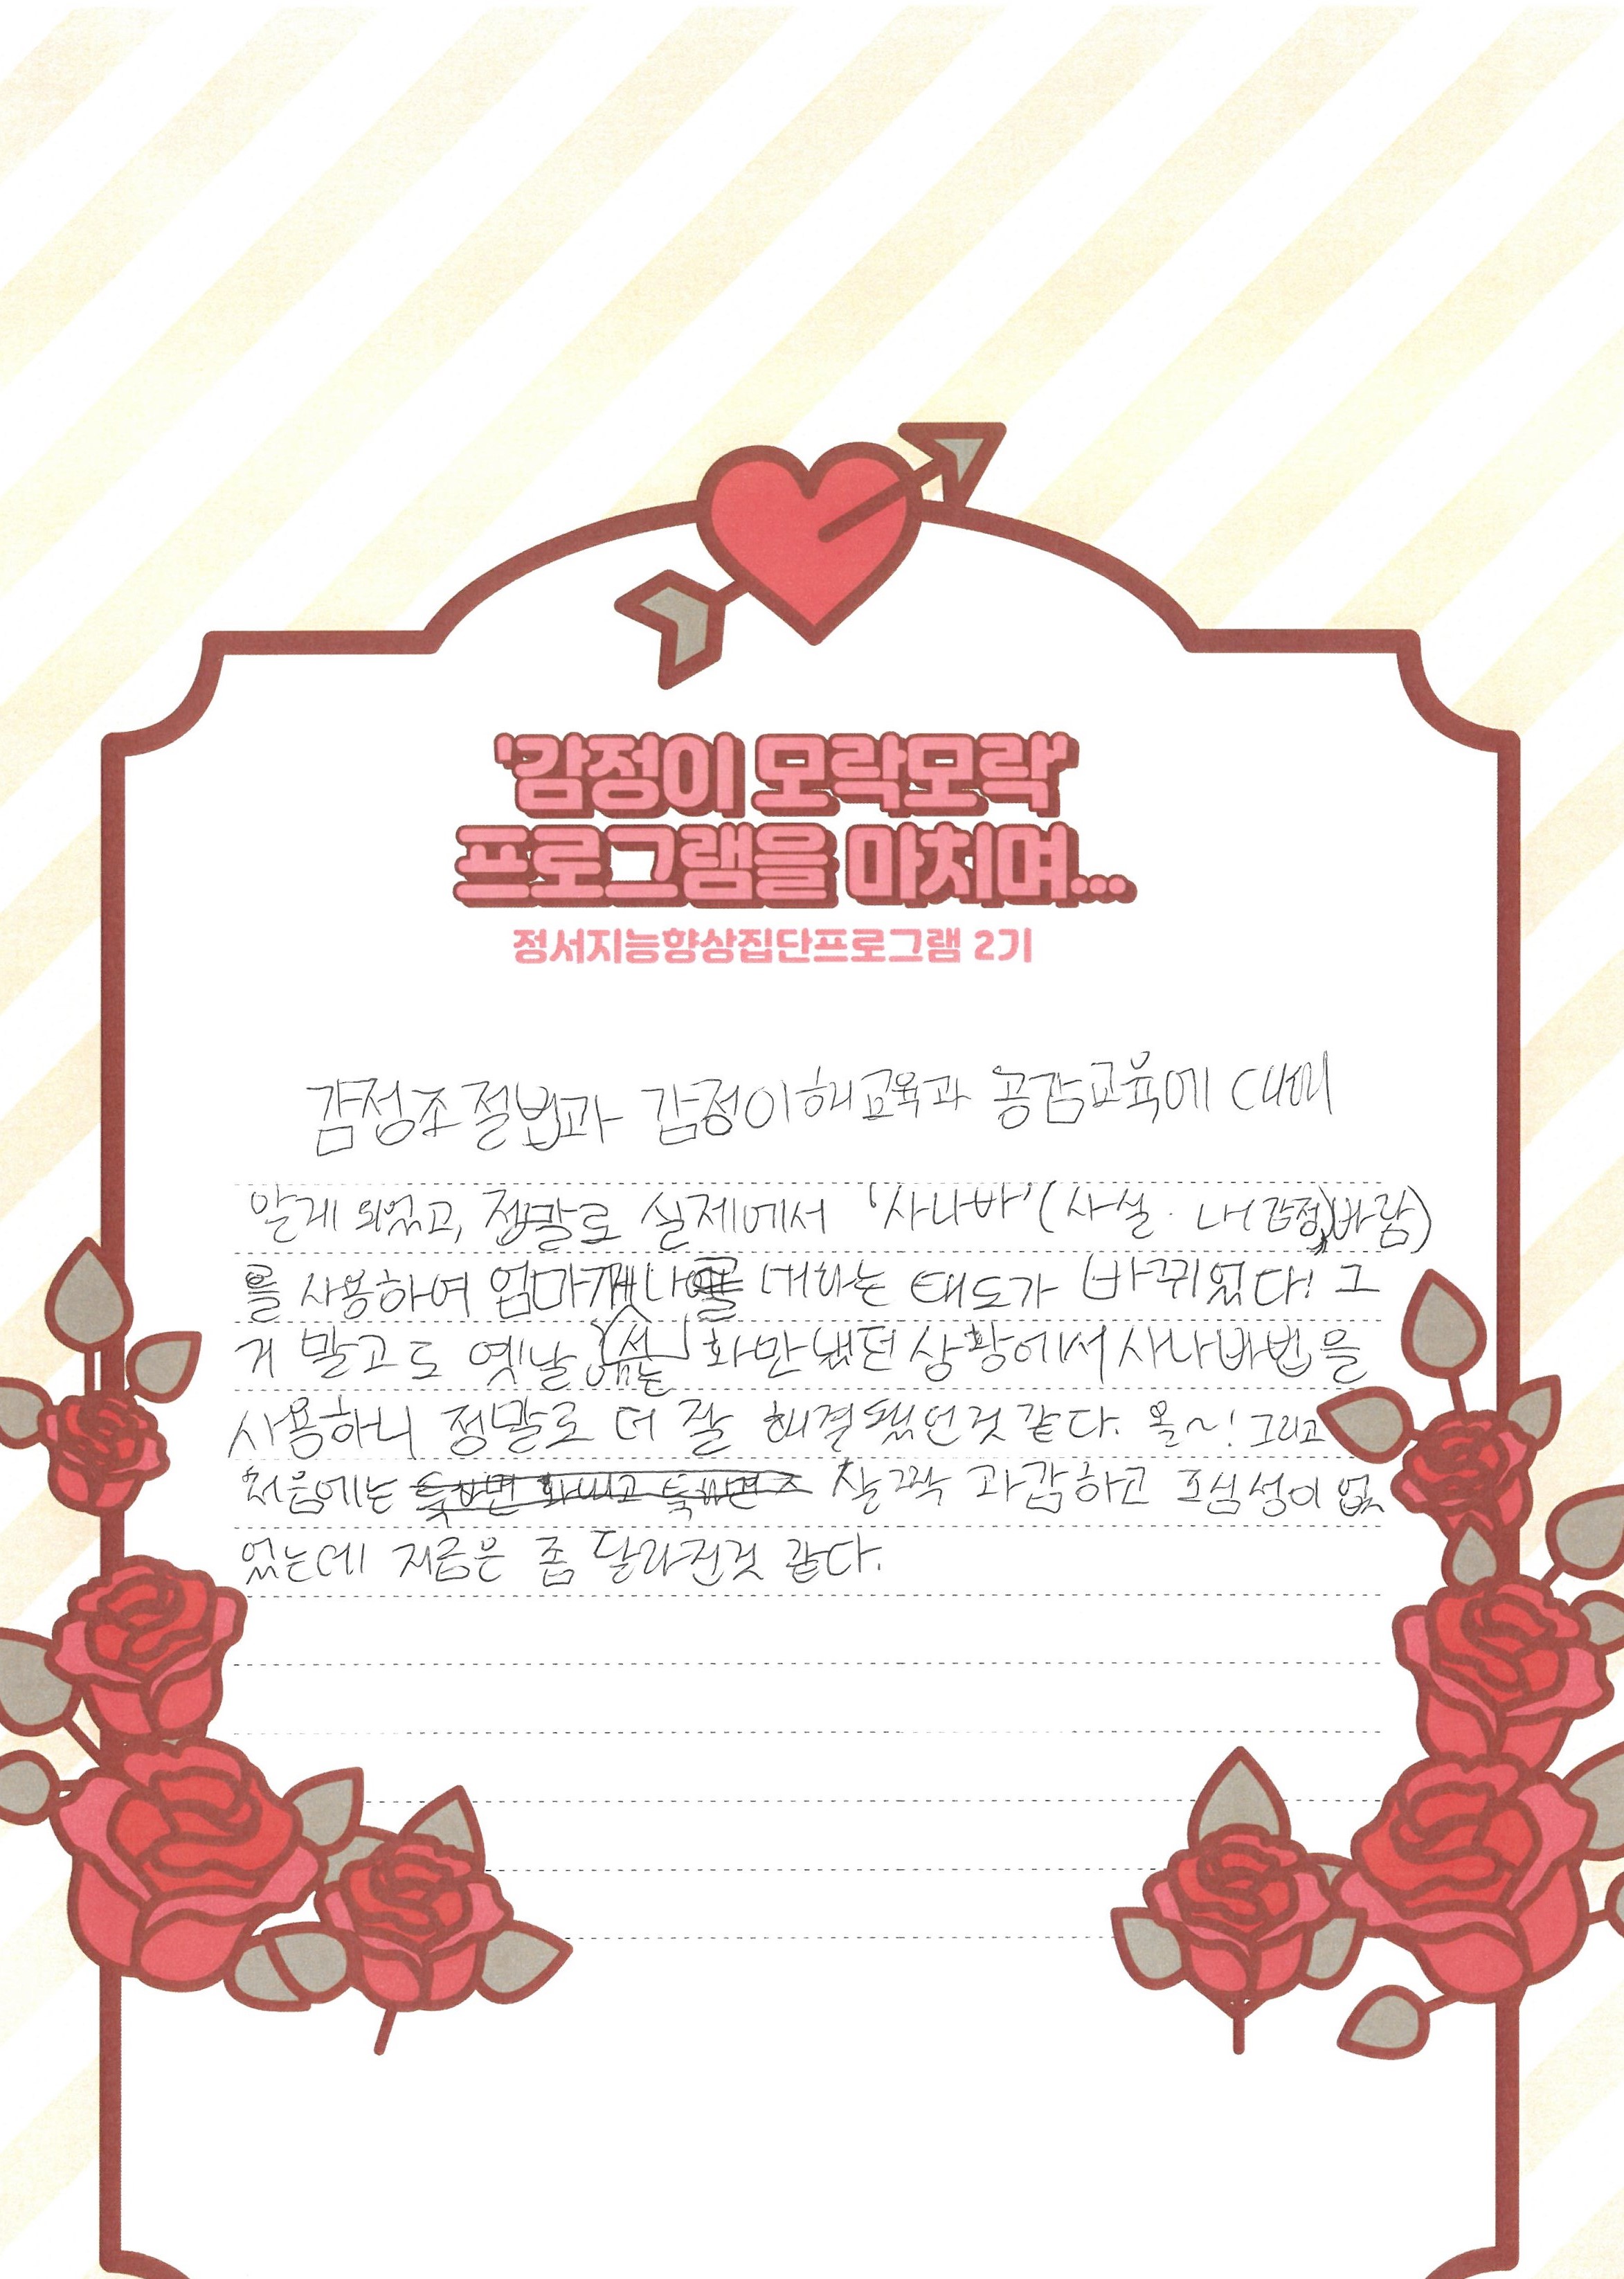 '감정이 모락모락'
프로그램을 마치며...
정서지능향상집단프로그램 2기
감정조절법과 감정이해교육과 공감교육에 대해
알게 되었고, 정말로 실제에서 '사나바'(사실·내감정,바람)
를 사용하여 엄마께 나 대하는 태도가 바뀌었다! 그
거 말고도 옛날 화만 냈던 상황에서 사나바법을
사용하니 정말로 더 잘 해결됐던것 같다. 올~! 그리고
처음에는 살짝 과감하고 조심성이 없
었는데 지금은 좀 달라진것 같다.